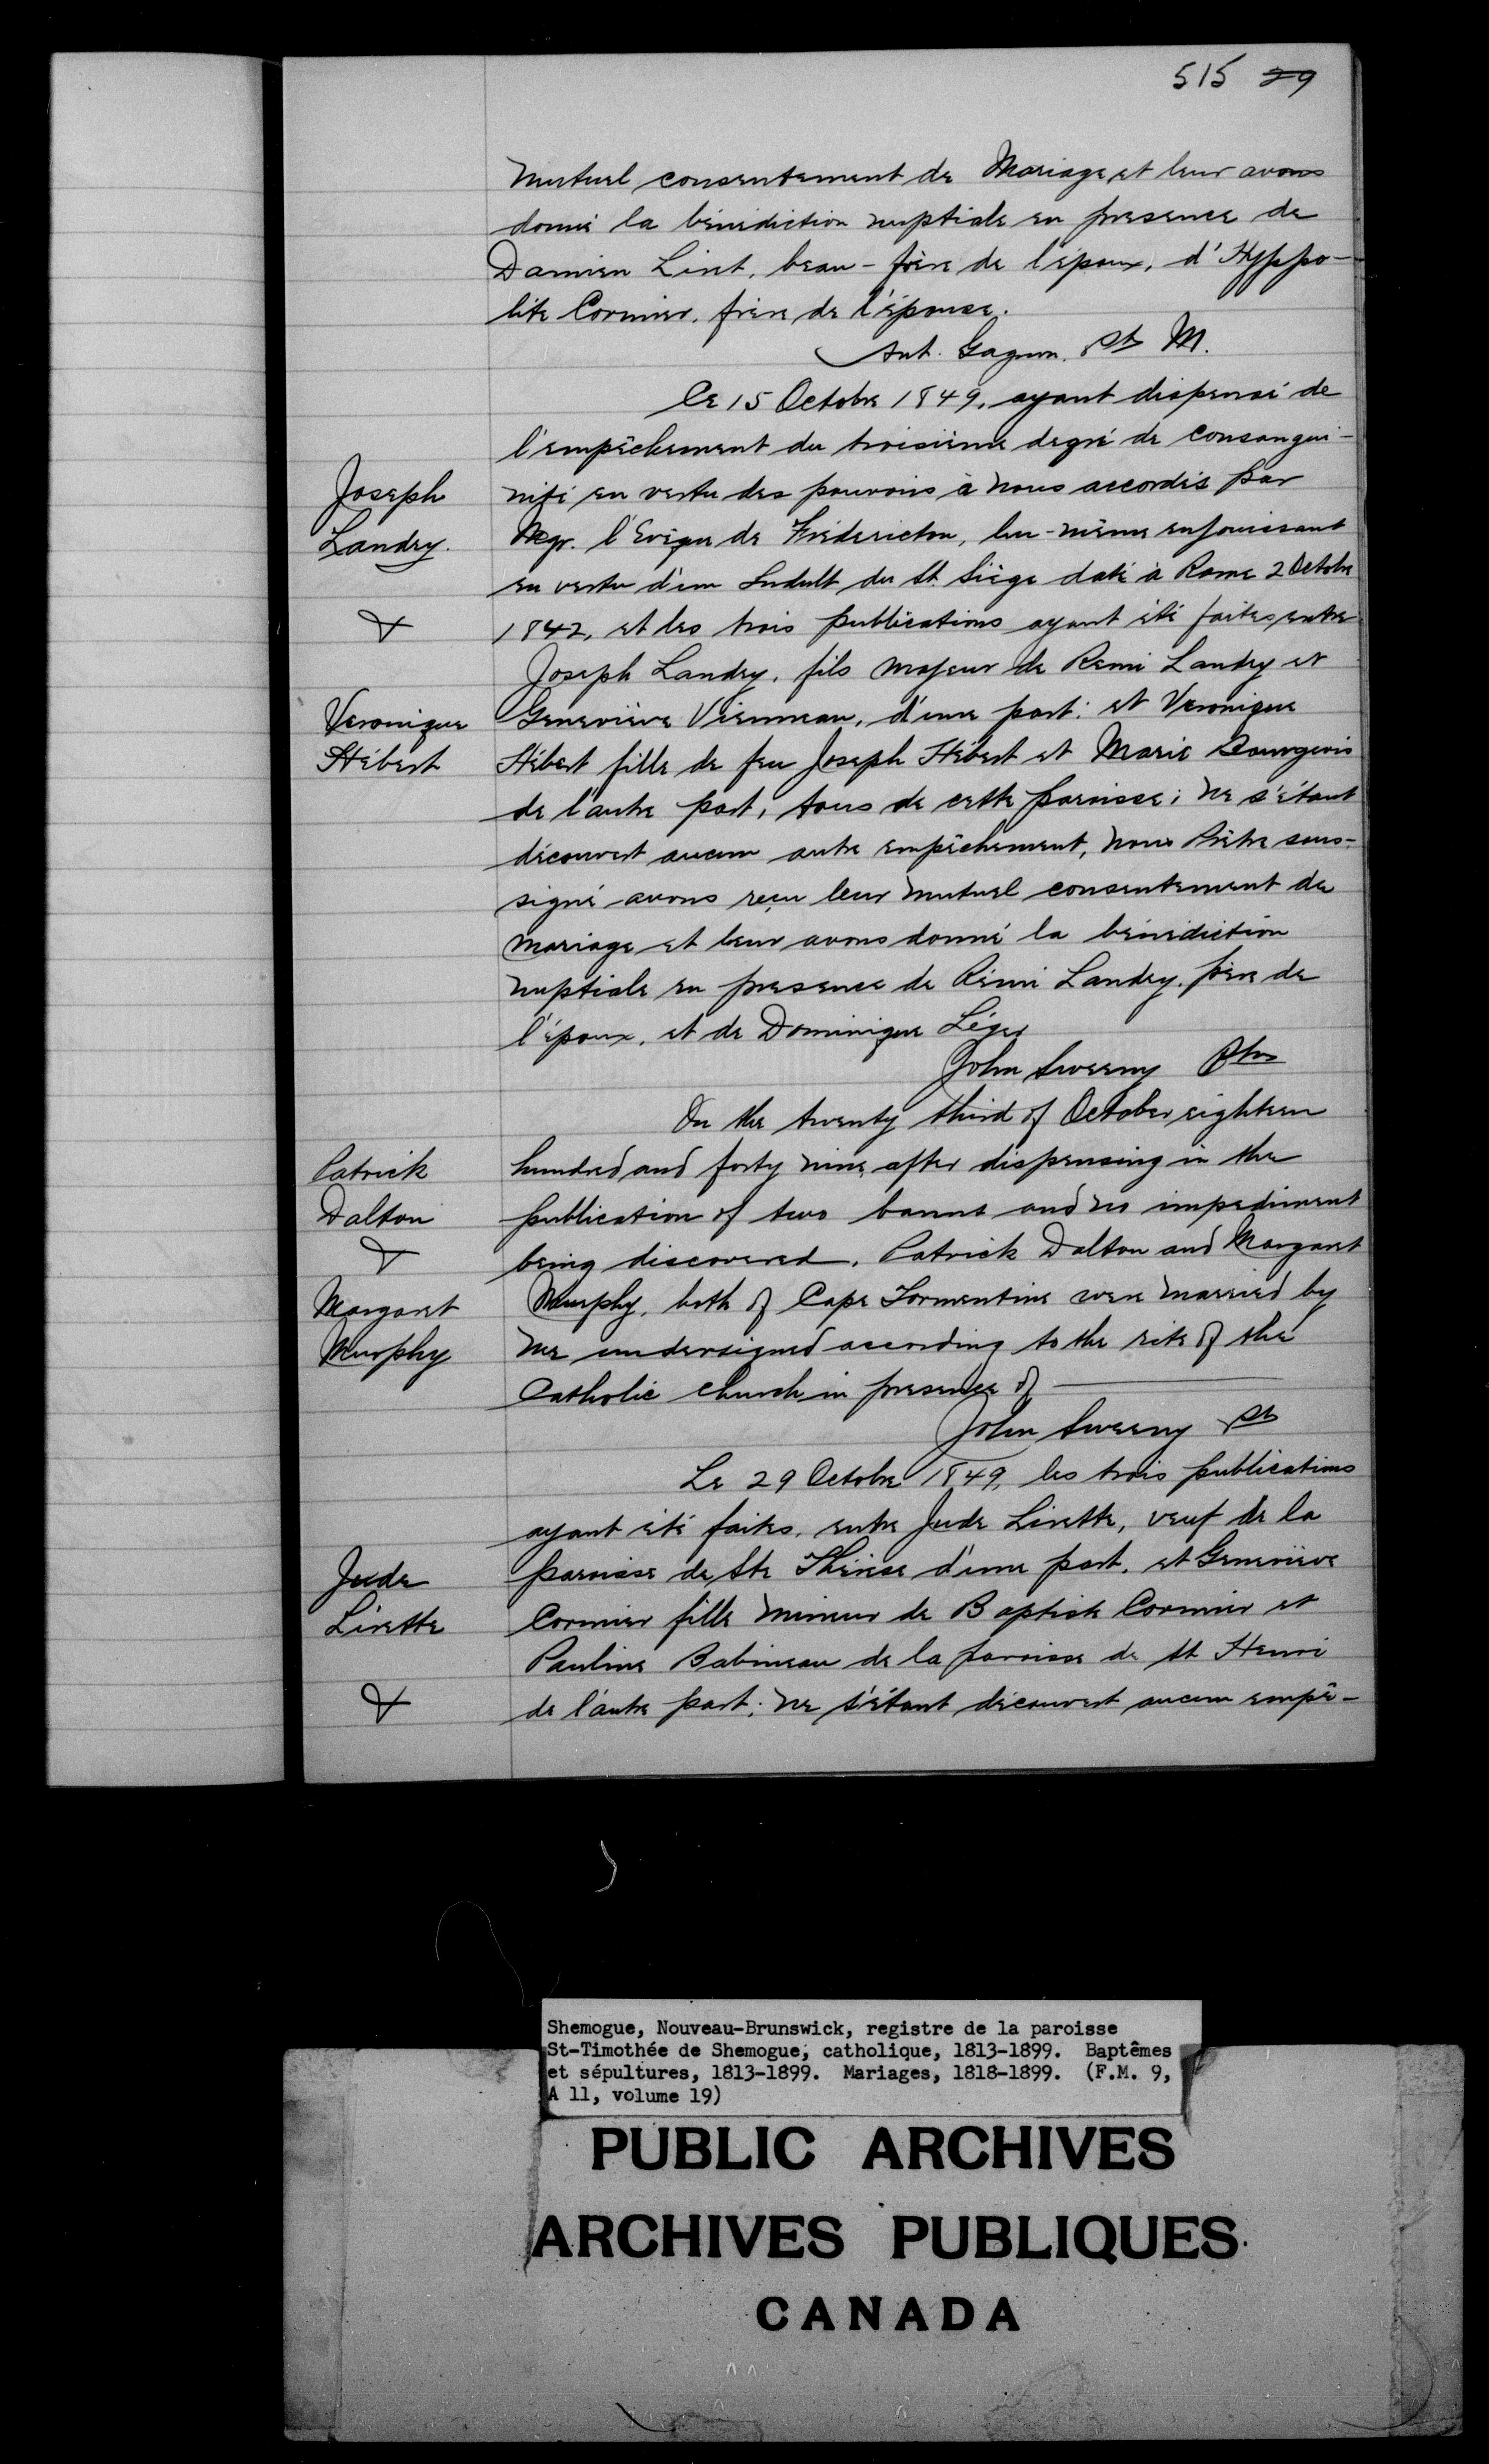 515 29
mutuel consentement de Mariage et leur avons
donné la bénédiction nuptiale en presence de
Damien Liret, beau-frère de l'époux, d'Hyppo-
lite Cormier, frère de l'épouse.
Ant. Gagnon. Pt M.
Ce 15 Octobre 1849, ayant dispensé de
l'empêchement du troisième degré de consangui-
Joseph
nité en vertu des pouvoirs à nous accordés par
Landry.
Mgr. l'Evêque de Frédericton, lui-même en jouissant
en vertu d'un Indult du St. Siège daté à Rome 2 Octobre
&
1842, et les trois publications ayant été faites entre
Joseph Landry, fils majeur de Remi Landry et
Veronique
Geneviève Vienneau, d'une part: et Veronique
Hébert
Hébert fille de feu Joseph Hébert et Marie Bourgeois
de l'autre part, tous de cette paroisse; ne s'étant
découvert aucun autre empêchement, nous Prêtre sous-
signé avons reçu leur mutuel consentement de
mariage et leur avons donné la bénédiction
nuptiale en presence de Rémi Landry, père de
l'époux, et de Dominique Léger
John Sweeny Ptre
On the twenty third of October eighteen
Patrick
hundred and forty nine, after dispensing in the
Dalton
publication of two banns and no impediment
&
being discovered, Patrick Dalton and Margaret
Margaret
Murphy, both of Cape Tormentine were married by
Murphy
me undersigned according to the rite of the
Catholic church in presence of
John Sweeny Pt
Le 29 Octobre 1849, les trois publications
ayant été faites, entre Jude Lirette, veuf de la
Jude
paroisse de Ste Thérèse d'une part, et Geneviève
Lirette
Cormier fille mineur de Baptiste Cormier et
Pauline Babineau de la paroisse de St Henri
&
de l'autre part; ne s'étant découvert aucun empê-
Shemogue, Nouveau-Brunswick, registre de la paroisse
St-Timothée de Shemogue, catholique, 1813-1899. Baptêmes
et sépultures, 1813-1899. Mariages, 1818-1899. (F.M. 9,
A 11, volume 19)
PUBLIC ARCHIVES
ARCHIVES PUBLIQUES
CANADA